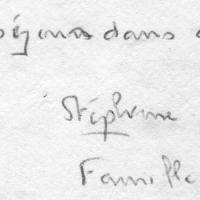 séjours dans
Stéphane
Famille